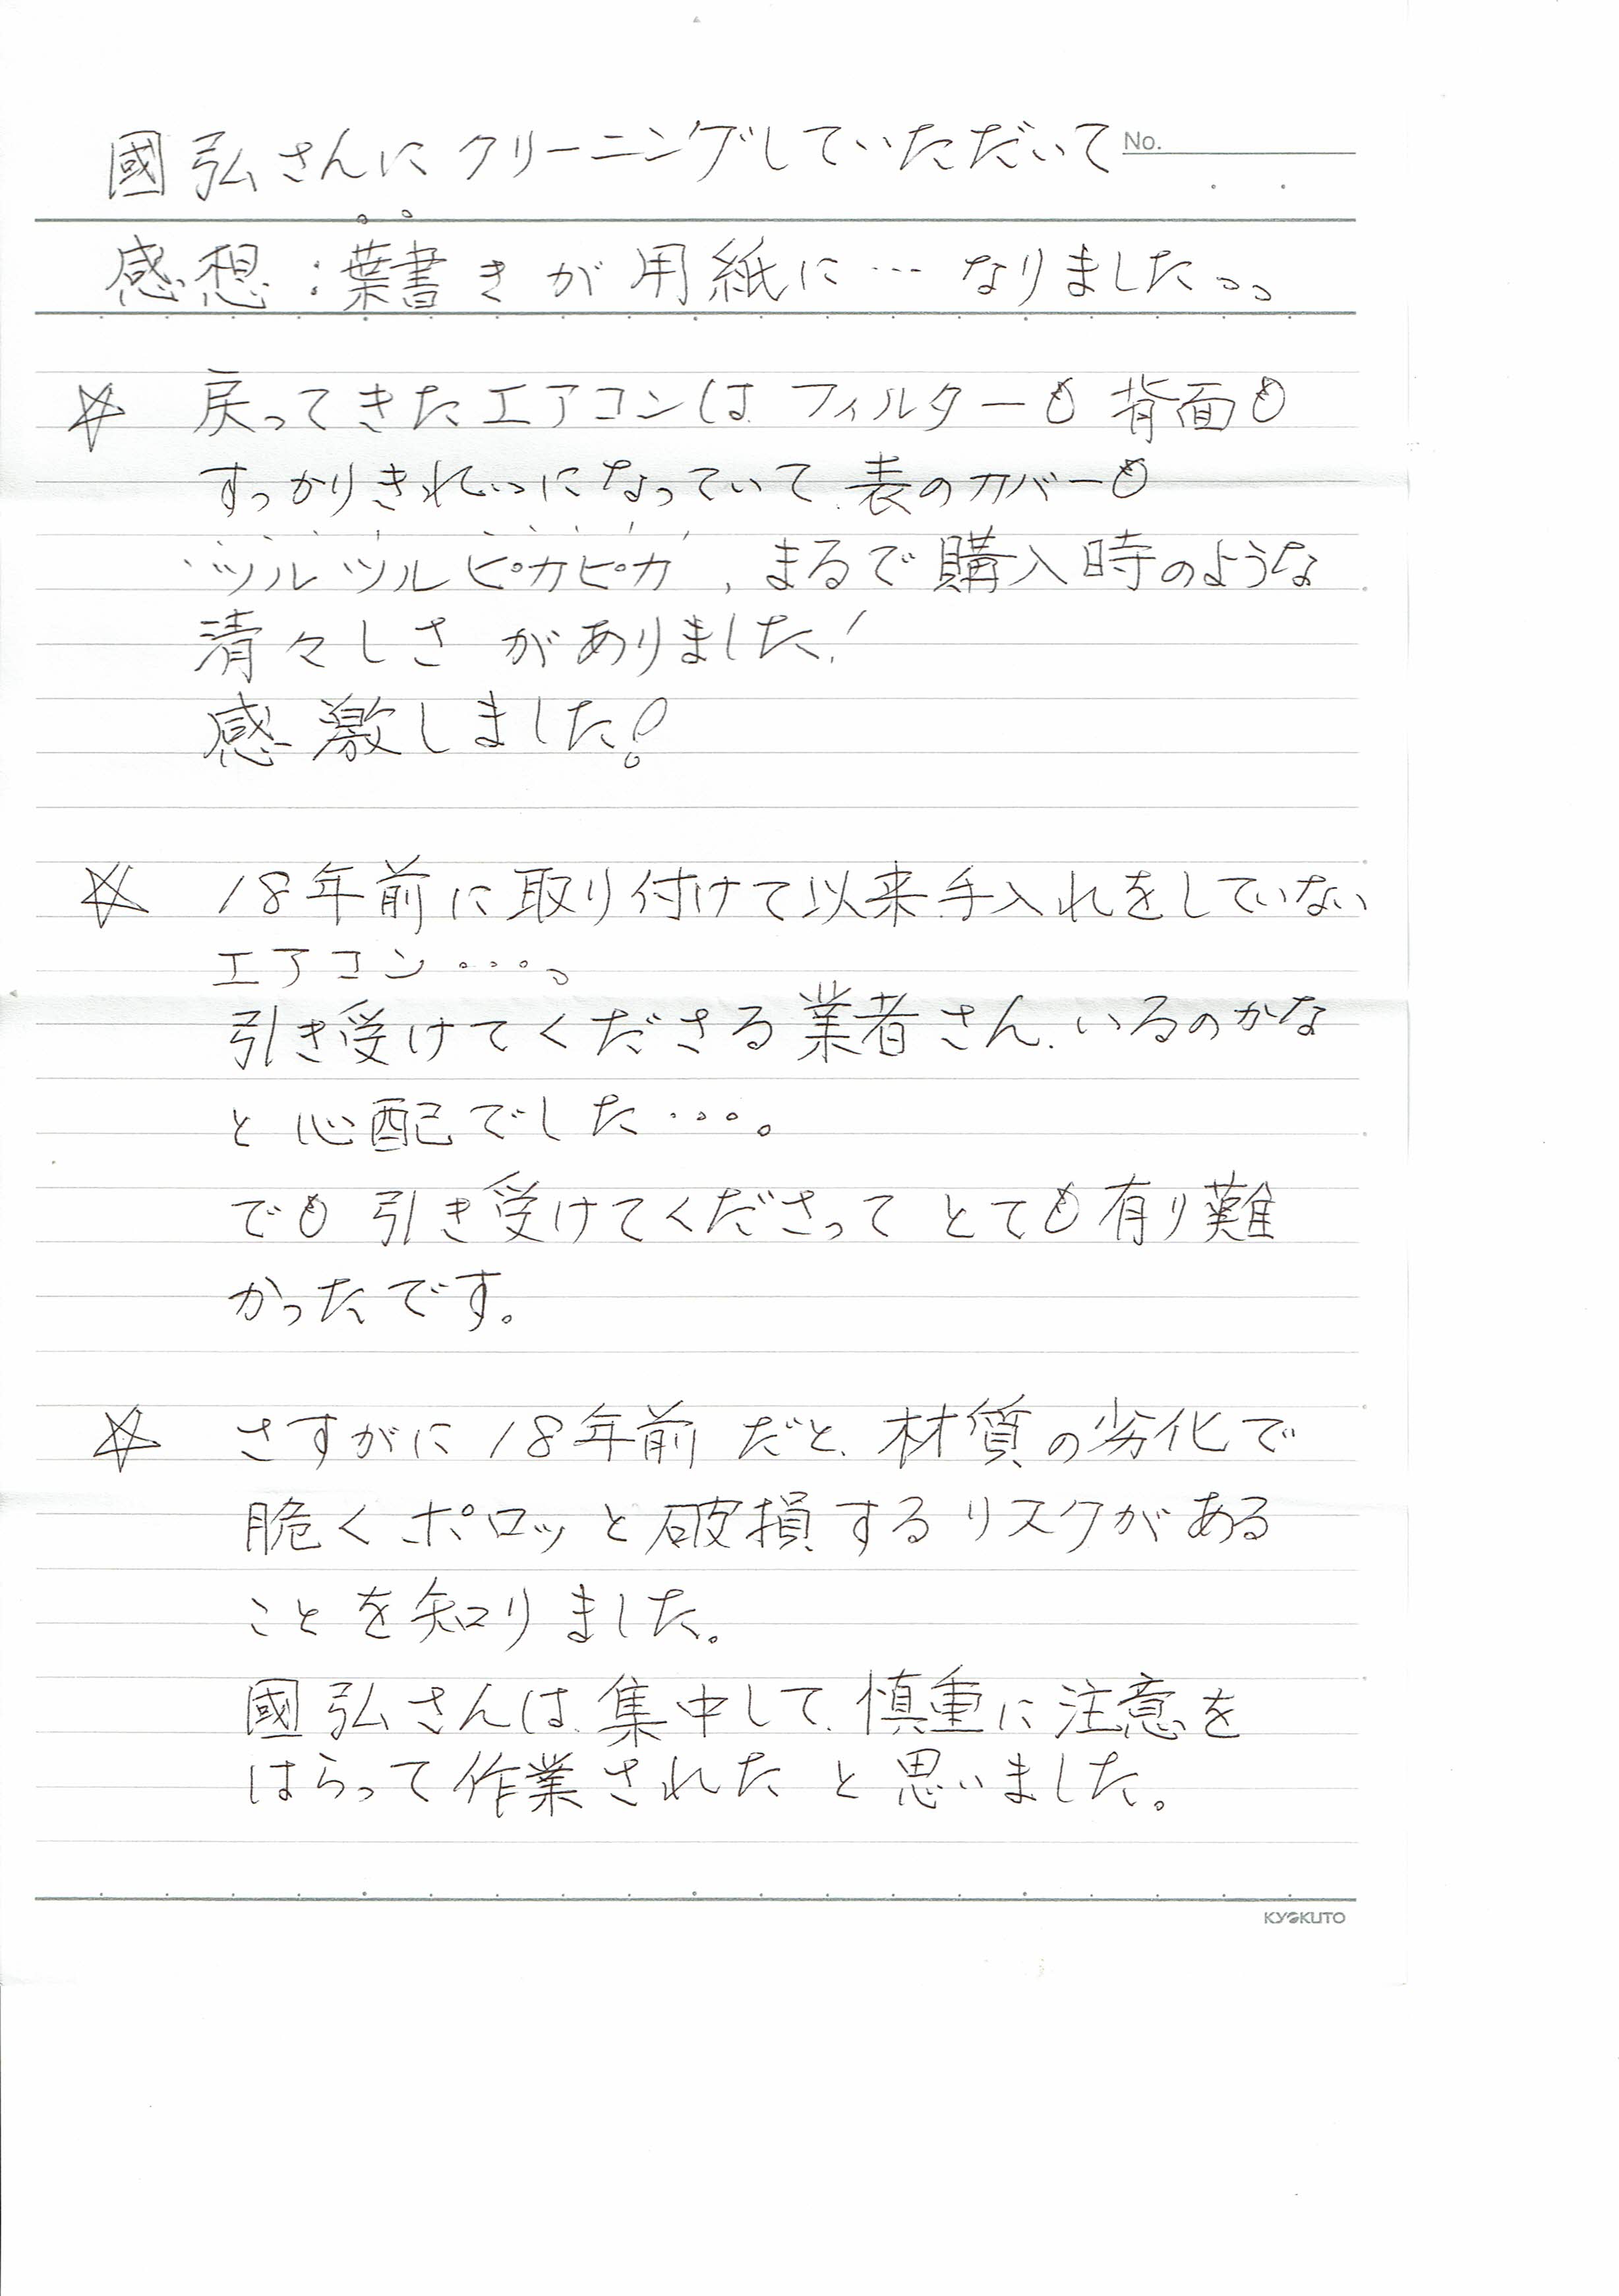 國弘さんにクリーニングしていただいて No.
感想:葉書きが用紙に…なりました。。
☆ 戻ってきたエアコンは フィルターも 背面も
すっかりきれいになっていて、表のカバーも
ツルツルピカピカ、まるで購入時のような
清々しさがありました!
感激しました!
☆ 18年前に取り付けて以来、手入れをしていない
エアコン…。
引き受けてくださる業者さん、いるのかな
と心配でした…。
でも 引き受けてくださって とても有り難
かったです。
☆ さすがに18年前だと、材質の劣化で
脆くポロッと破損するリスクがある
ことを知りました。
國弘さんは、集中して、慎重に注意を
はらって作業されたと思いました。
KYOKUTO